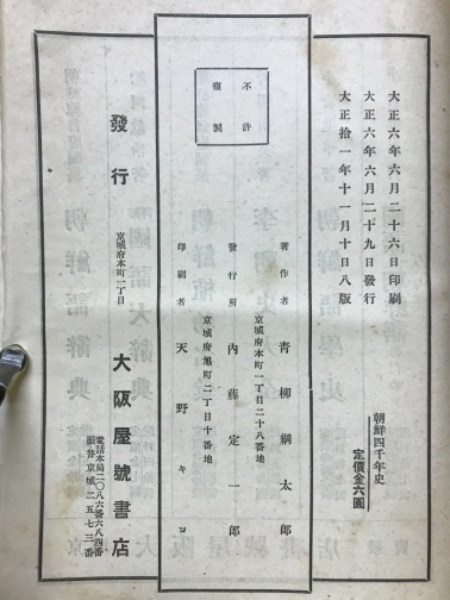 大正六年六月二十六日印刷
大正六年六月二十九日發行
大正拾一年十一月十日八版
朝鮮四千年史
定價金六圓
不許
複製
京城府本町一丁目二十八番地
著作者 青柳綱太郎
發行所 內藤定一郎
京城府旭町二丁目十番地
印刷者 天野キヨ
發行
京城府本町一丁目
大阪屋號書店
電話本局二〇八六番六八四番
振替京城二五七三番